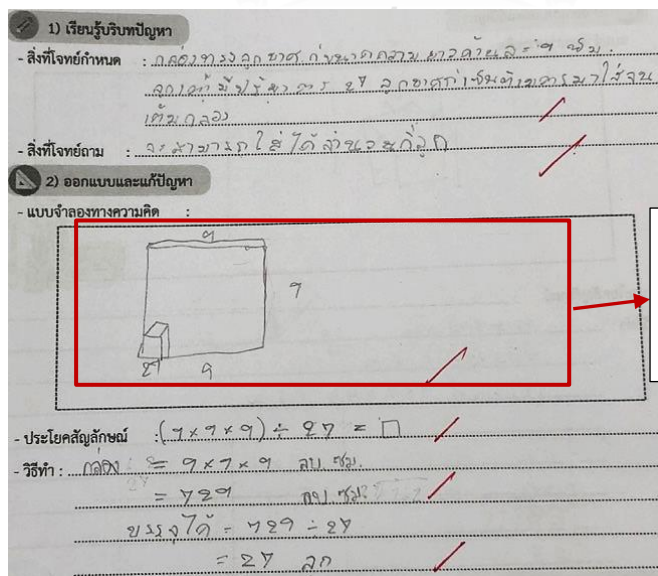 1) เรียนรู้บริบทปัญหา
- สิ่งที่โจทย์กำหนด : กล่องทรงลูกบาศก์ขนาดความยาวด้านละ 9 ซม.
ลูกเต๋ามีปริมาตร 27 ลูกบาศก์เซนติเมตรมาใส่จน
เต็มกล่อง
- สิ่งที่โจทย์ถาม : จะสามารถใส่ได้จำนวนกี่ลูก
2) ออกแบบและแก้ปัญหา
- แบบจำลองทางความคิด :
9
9
27 9
- ประโยคสัญลักษณ์ : (9×9×9) ÷ 27 = □
- วิธีทำ : กล่อง = 9×9×9 ลบ.ซม.
= 729 ลบ.ซม.
บรรจุได้ = 729 ÷ 27
= 27 ลูก